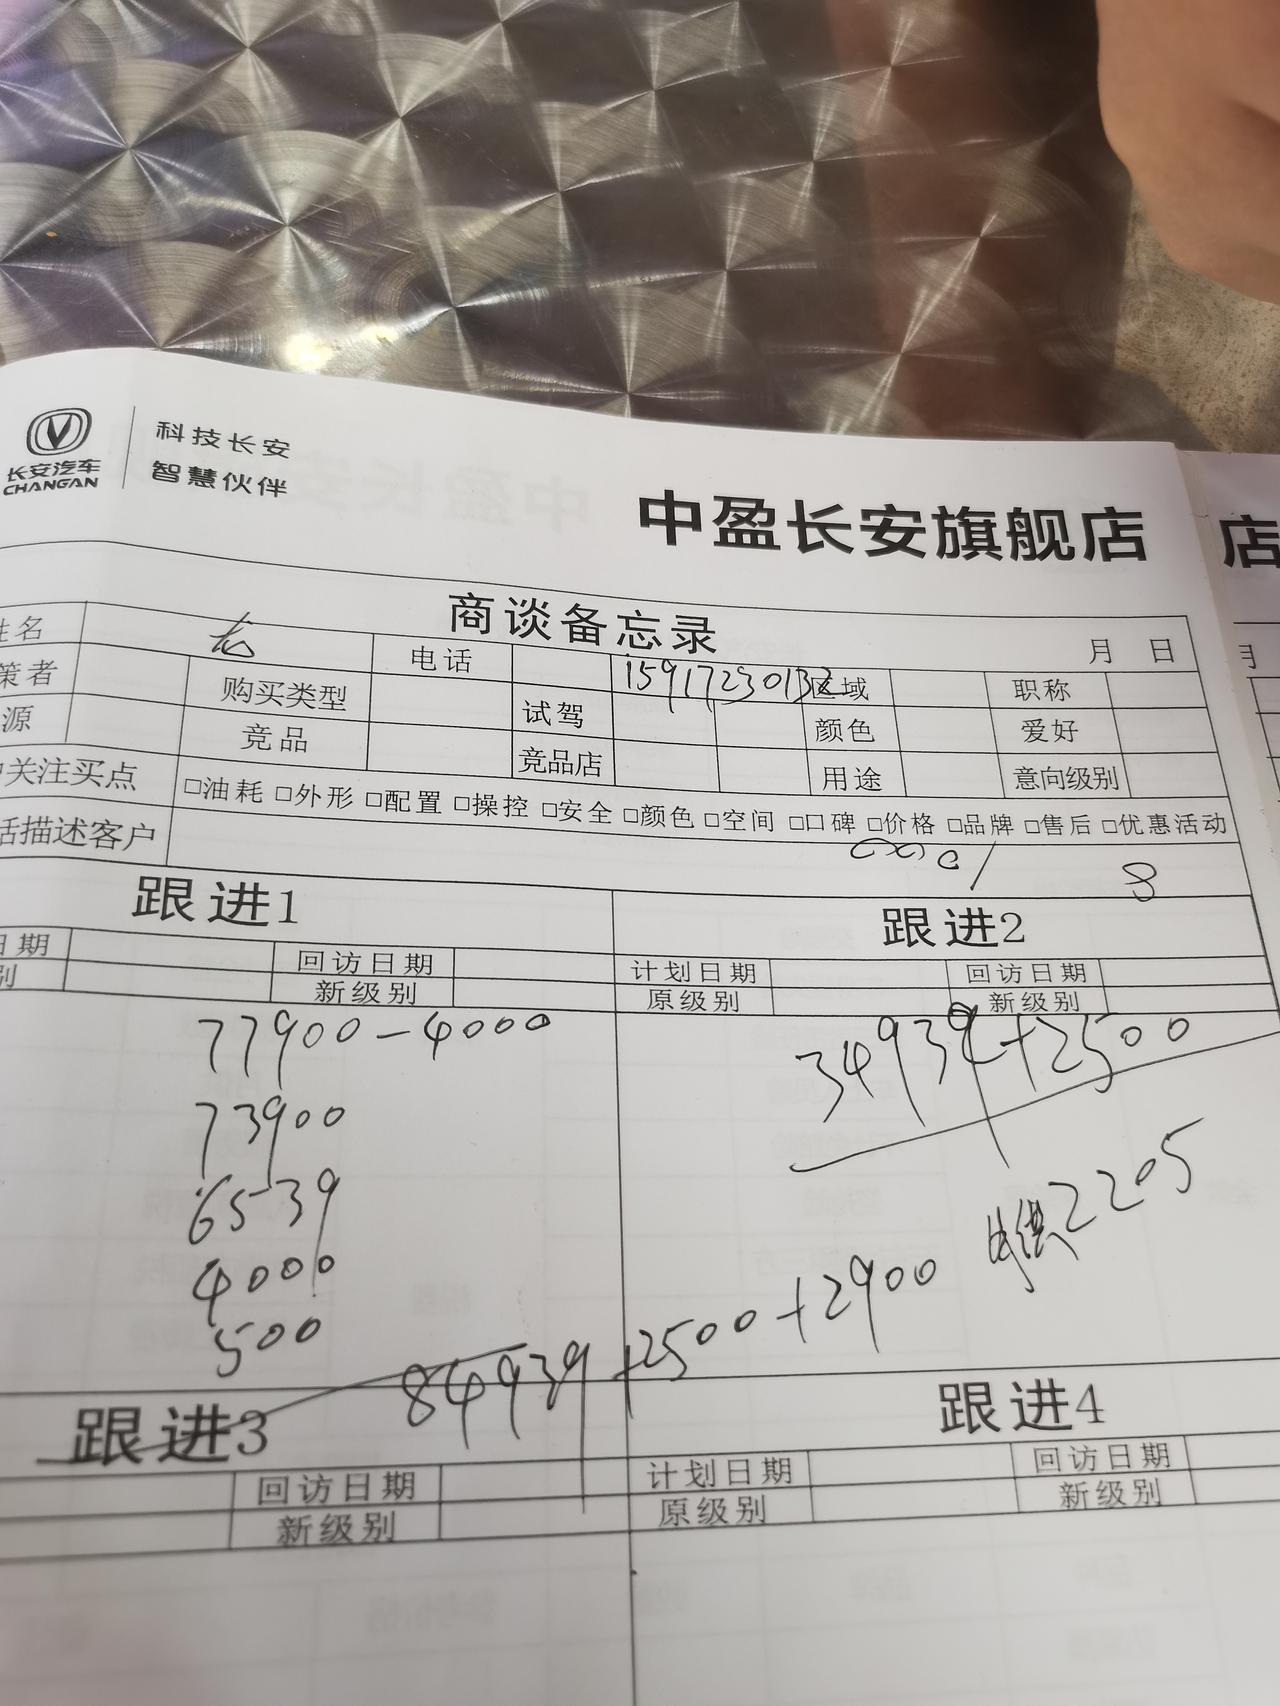 长安汽车
CHANGAN
科技长安
智慧伙伴
中盈长安旗舰店
店
商谈备忘录
月 日
姓名 电话 15917230132 区域 职称
策者 购买类型 试驾 颜色 爱好
源 竞品 竞品店 用途 意向级别
关注买点 □油耗 □外形 □配置 □操控 □安全 □颜色 □空间 □口碑 □价格 □品牌 □售后 □优惠活动
话描述客户
8
跟进1 跟进2
日期 回访日期 计划日期 回访日期
别 新级别 原级别 新级别
77900-4000
73900
6539
4000
500
84939+2500+2900
34939+2500
月供2205
跟进3 跟进4
回访日期 计划日期 回访日期
新级别 原级别 新级别